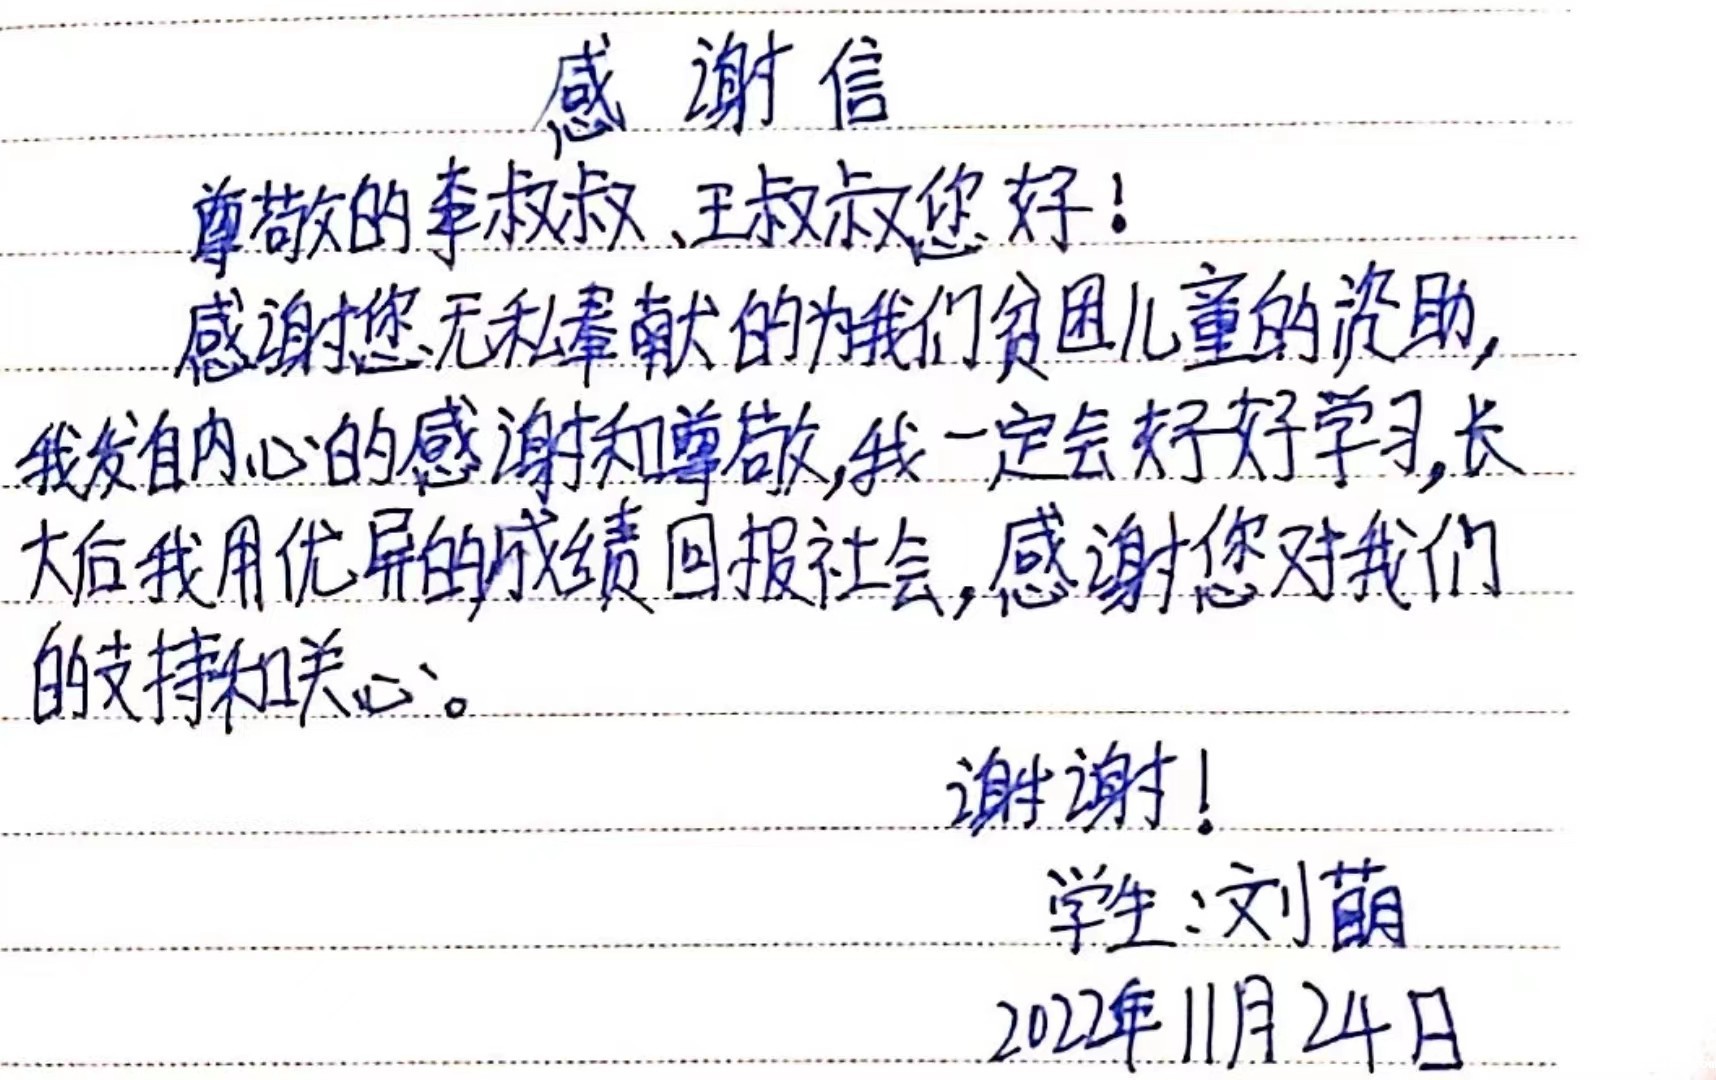 感谢信
尊敬的李叔叔、王叔叔您好!
感谢您无私奉献的为我们贫困儿童的资助,
我发自内心的感谢和尊敬,我一定会好好学习,长
大后我用优异的成绩回报社会,感谢您对我们
的支持和关心。
谢谢!
学生:刘萌
2022年11月24日